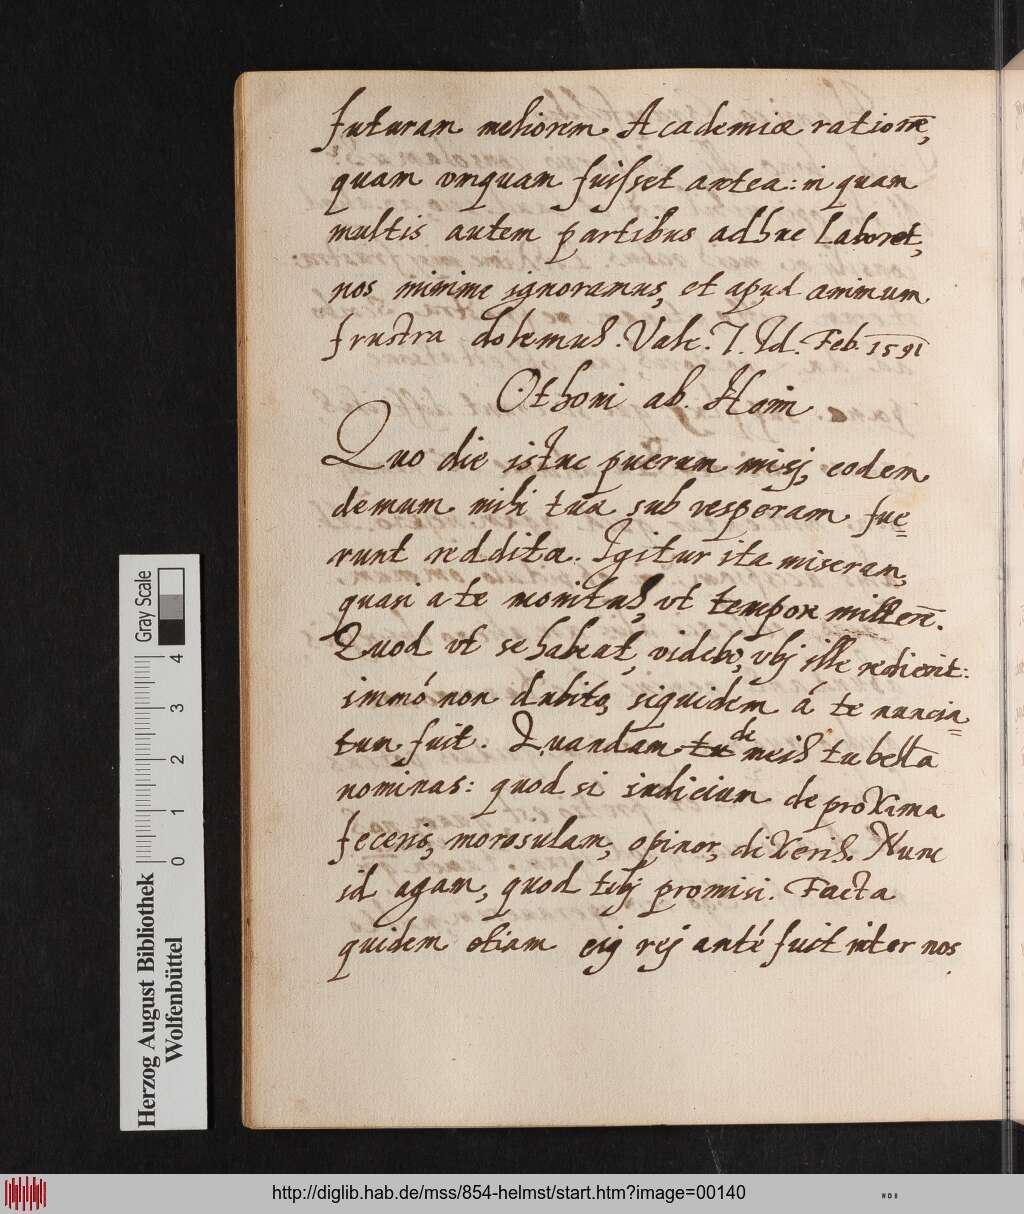 futuram meliorem Academiæ ratione͞,
quam vnquam fuisset antea: in quam
multis autem partibus adhuc laboret,
nos minime ignoramus, et apud animum
frustra dolemus. Vale. 7. Id. Feb. 1591
Othoni ab. Hoim
Quo die istuc puerum misj, eodem
demum mihi tuæ sub vesperam fue=
runt redditæ. Igitur ita miseram,
quasi a te monitus, vt tempore mittere͞.
Quod vt se habeat, videbo, vbj ille redierit:
immó non dubito, siquidem á te nuncia=
tum fuit. Quandam tu de meis tu bella
nominas: quod si iudicium de proxima
feceris, morosulam, opinor, dixeris. Nunc
id agam, quod tibj promisi. Facta
quidem etiam eig rej anté fuit inter nos
Herzog August Bibliothek
Wolfenbüttel
0 1 2 3 4
Gray Scale
http://diglib.hab.de/mss/854-helmst/start.htm?image=00140
WDB